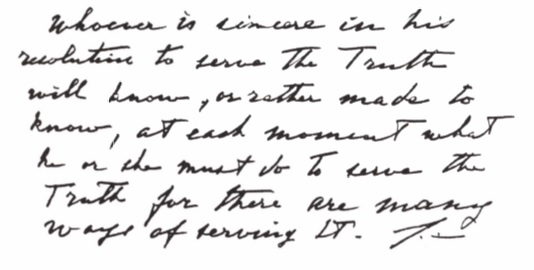 Whoever is sincere in his
resolution to serve the Truth
will know, or rather made to
know, at each moment what
he or she must do to serve the
Truth for there are many
ways of serving It.